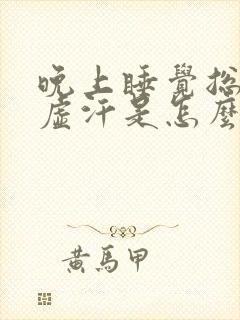 晚上睡覺總
虛汗是怎麼
黃馬甲